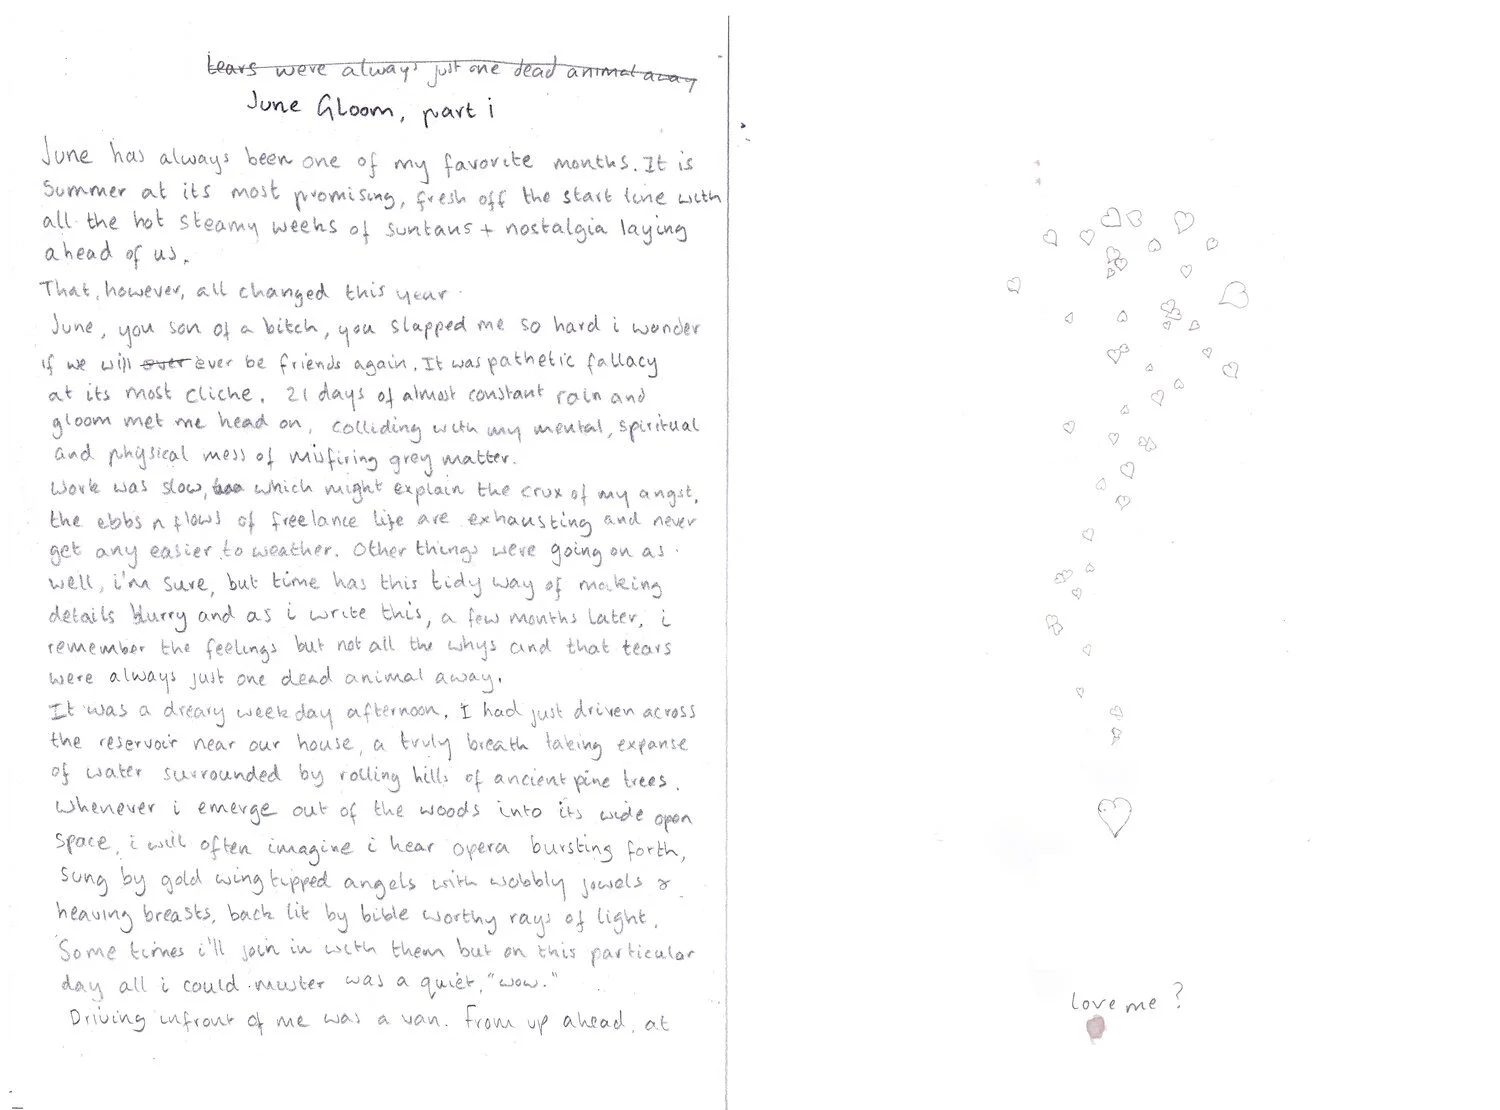 tears were always just one dead animal away
June Gloom, part i
June has always been one of my favorite months. It is
Summer at its most promising, fresh off the start line with
all the hot steamy weeks of suntans + nostalgia laying
ahead of us.
That, however, all changed this year.
June, you son of a bitch, you slapped me so hard i wonder
if we will over ever be friends again. It was pathetic fallacy
at its most cliche. 21 days of almost constant rain and
gloom met me head on, colliding with my mental, spiritual
and physical mess of misfiring grey matter.
Work was slow, which might explain the crux of my angst,
the ebbs n flows of freelance life are exhausting and never
get any easier to weather. Other things were going on as
well, i'm sure, but time has this tidy way of making
details blurry and as i write this, a few months later, i
remember the feelings but not all the whys and that tears
were always just one dead animal away.
It was a dreary weekday afternoon. I had just driven across
the reservoir near our house, a truly breath taking expanse
of water surrounded by rolling hills of ancient pine trees.
Whenever i emerge out of the woods into its wide open
space, i will often imagine i hear opera bursting forth,
sung by gold wing tipped angels with wobbly jowels &
heaving breasts, back lit by bible worthy rays of light.
Some times i'll join in with them but on this particular
day all i could muster was a quiet, "wow."
Driving infront of me was a van. From up ahead, at
love me?